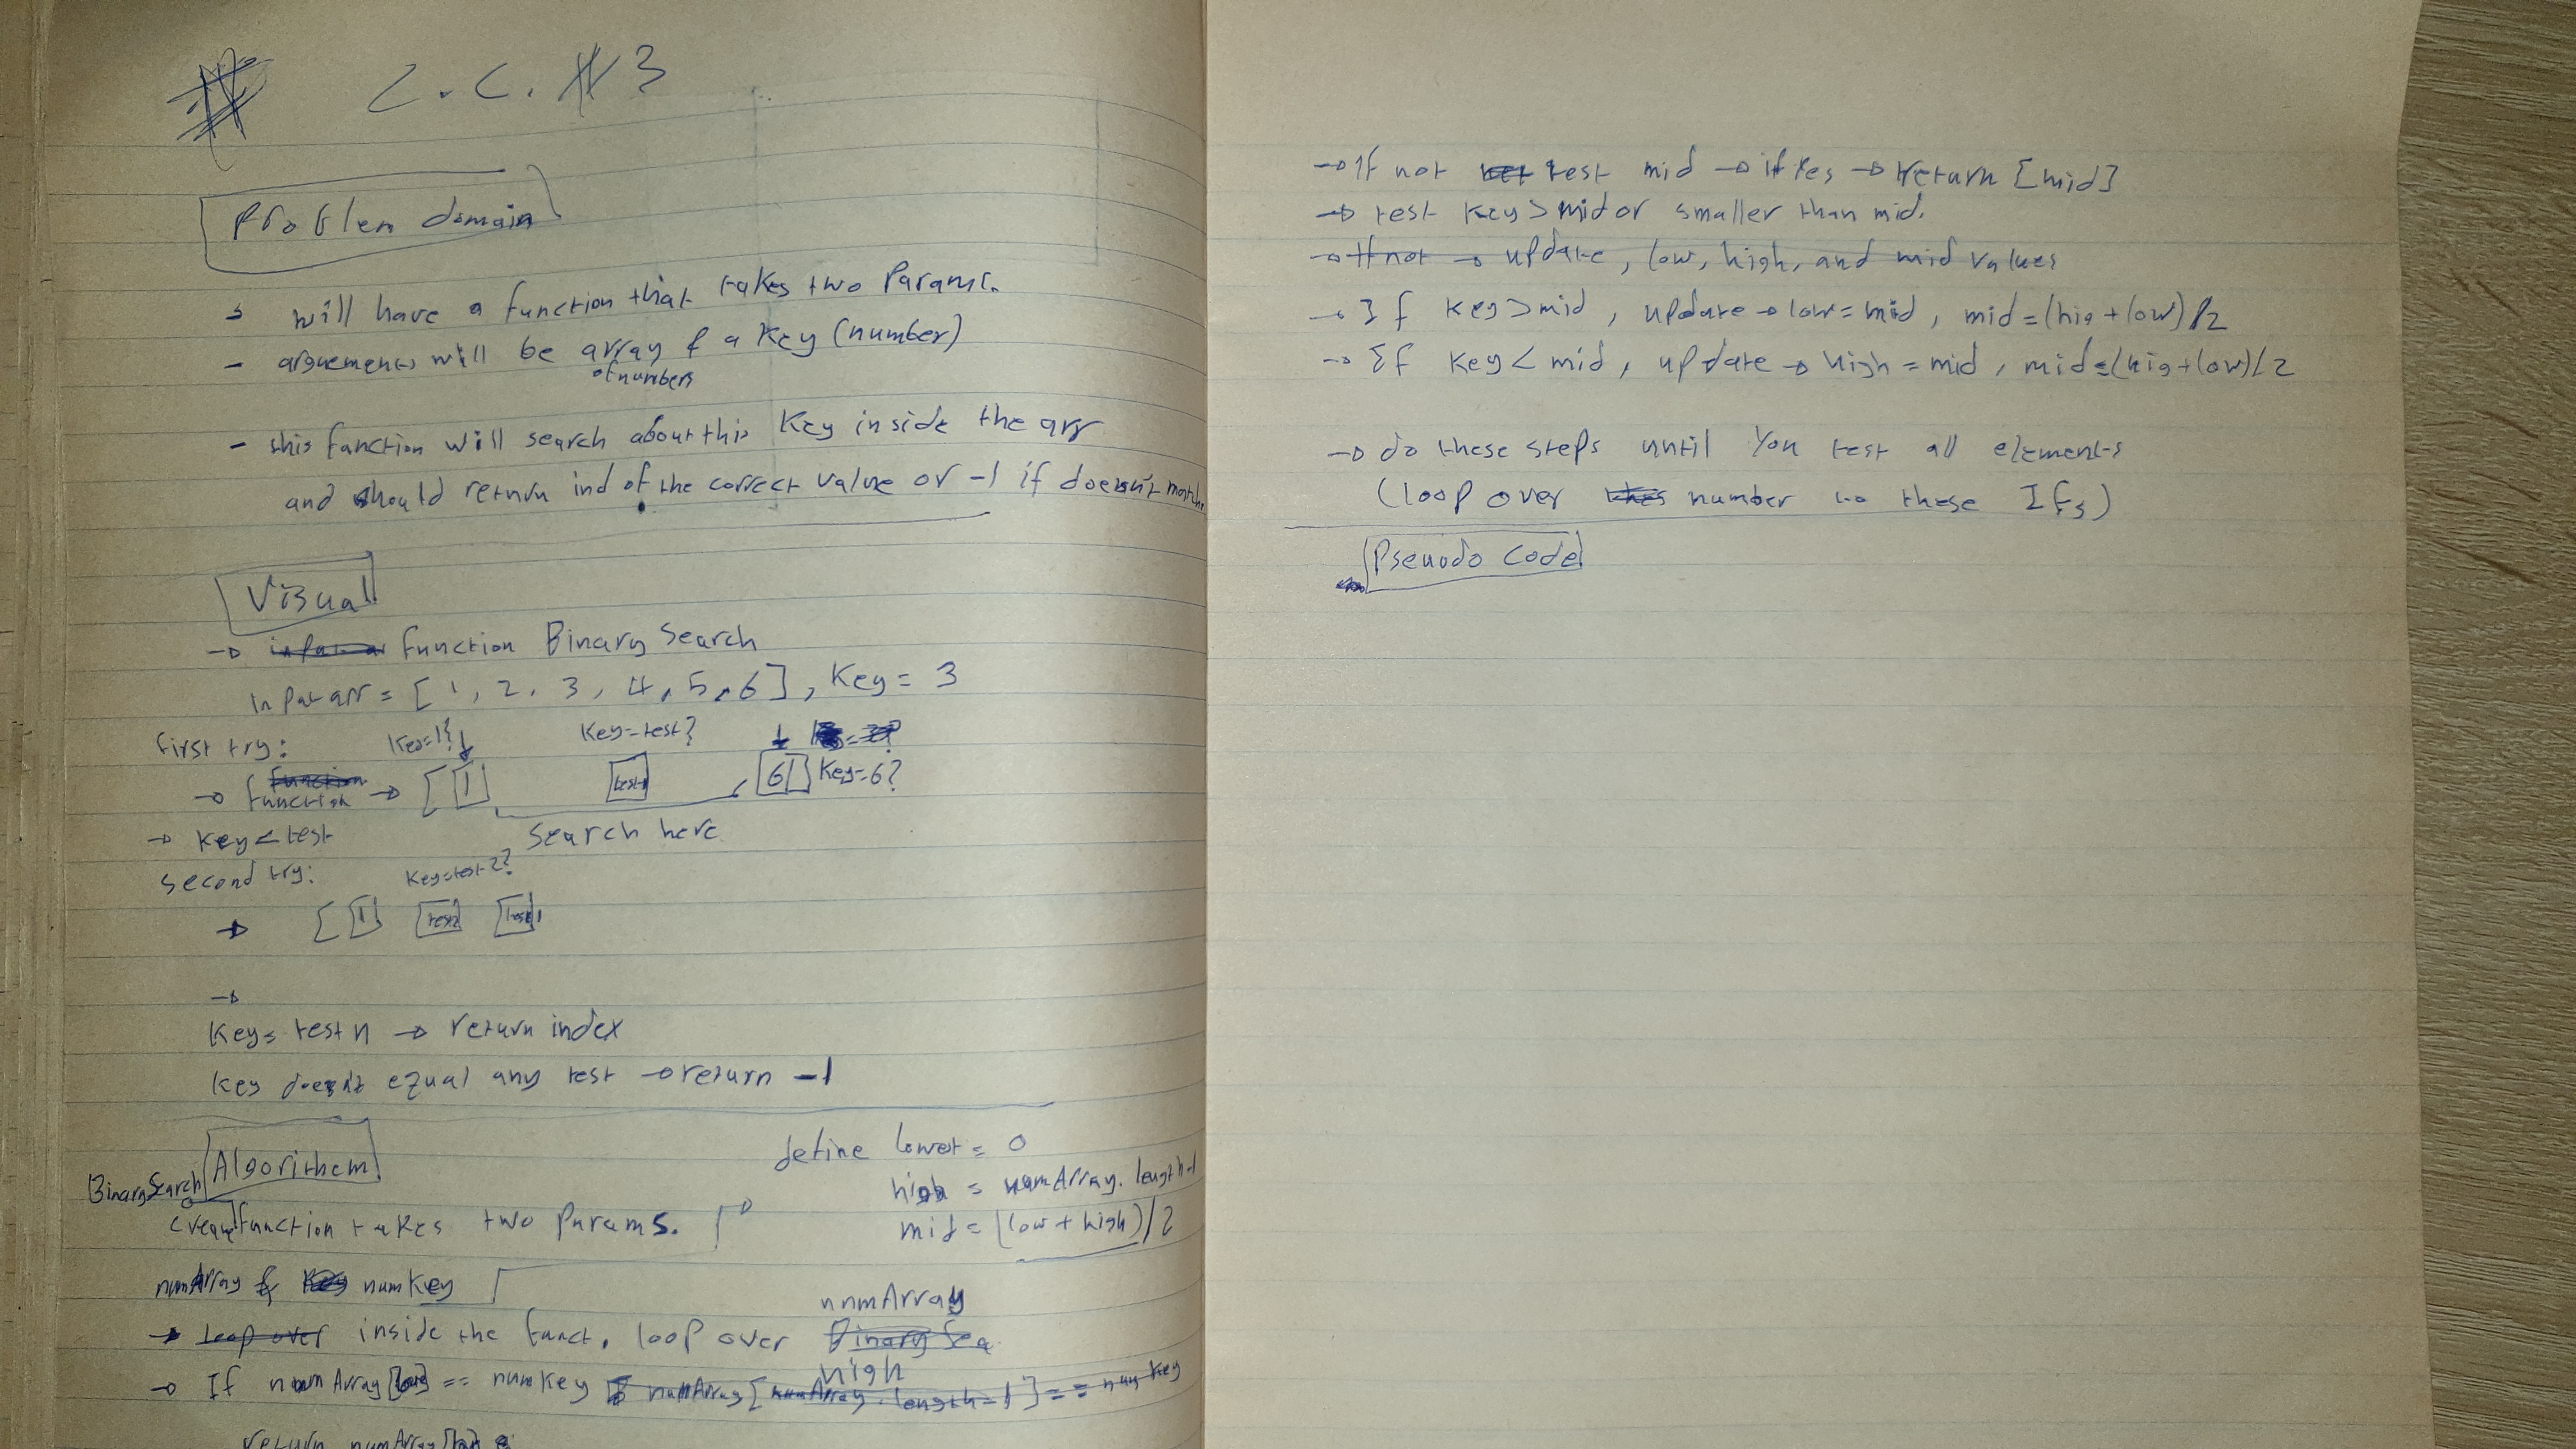 C.C. #3
Problem domain
- will have a function that takes two Params.
- arguements will be array & a Key (number)
of numbers
- this function will search about this Key inside the arr
and should return ind of the correct value or -1 if doesn't match
Visual
→ function Binary Search
Input arr = [1, 2, 3, 4, 5, 6], Key = 3
first try: Key=1? Key=test? Key=6?
→ function → [ 1 test1 6 ]
→ Key < test Search here
second try: Key=test2?
→ [ 1 test2 test1
→
Key = test n → return index
Key doesn't equal any test → return -1
Algorithem
BinarySearch
creat function takes two Params.
numArray & numKey
define lowest = 0
high = numArray.length-1
mid = (low + high)/2
→ inside the funct, loop over numArray
→ If numArray[low] == numKey high
return numArray[low]
→ If not test mid → if Yes → return [mid]
→ test Key > mid or smaller than mid.
→ If not → update, low, high, and mid values
→ If Key > mid, update → low = mid, mid = (hig + low)/2
→ If Key < mid, update → high = mid, mid = (hig + low)/2
→ do these steps until You test all elements
(loop over number to these Ifs)
Pseuodo Code